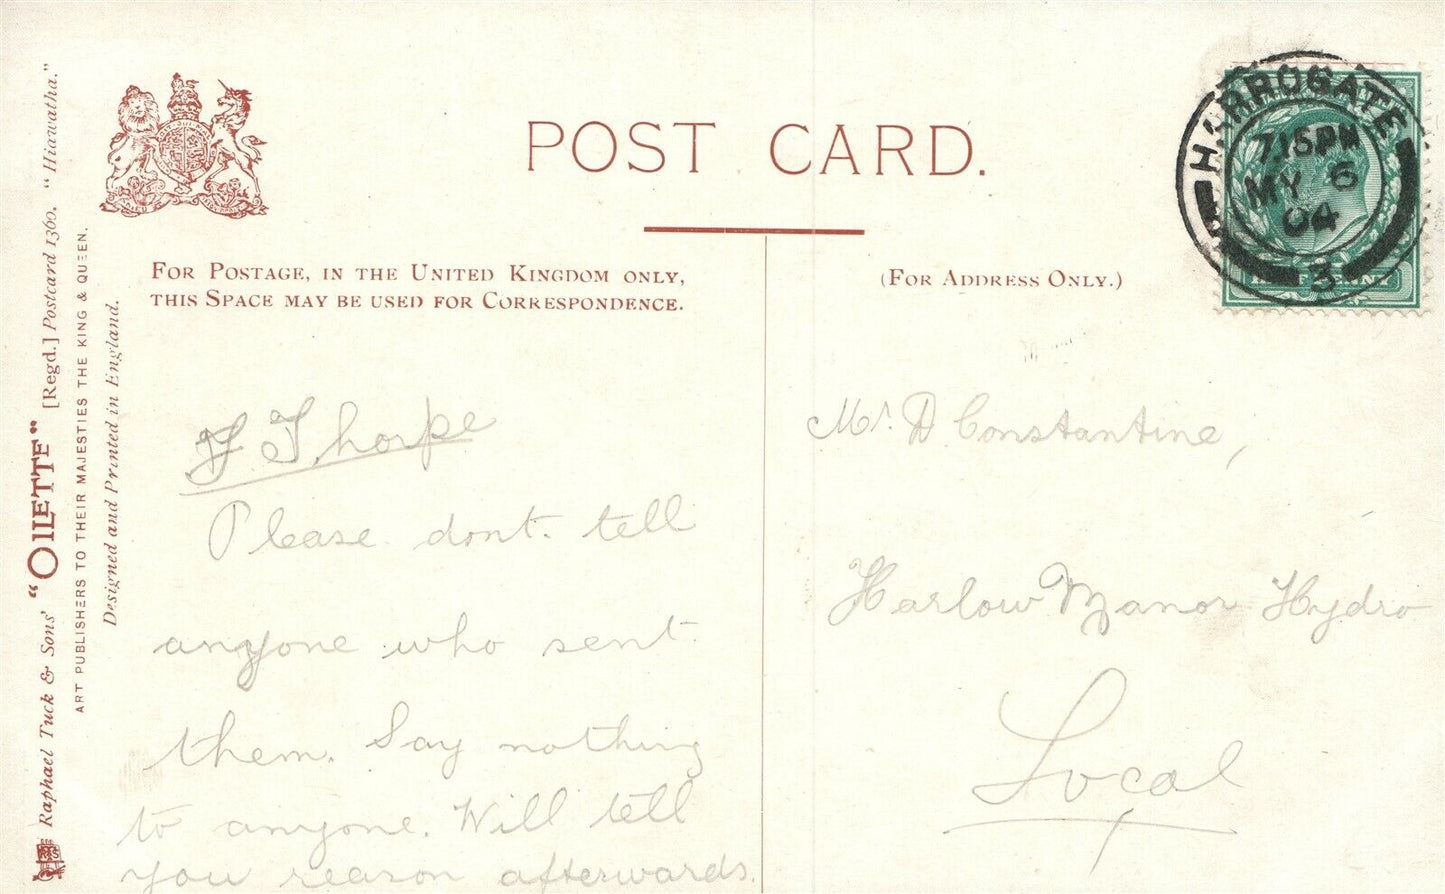 Raphael Tuck & Sons' "OILETTE" [Regd.] Postcard 1360. "Hiawatha."
ART PUBLISHERS TO THEIR MAJESTIES THE KING & QUEEN.
Designed and Printed in England.
POST CARD.
FOR POSTAGE, IN THE UNITED KINGDOM ONLY,
THIS SPACE MAY BE USED FOR CORRESPONDENCE.
(FOR ADDRESS ONLY.)
HARROGATE
7.15PM
MY 6
04
3
F. Thorpe
Please dont. tell
anyone who sent
them. Say nothing
to anyone. Will tell
you reason afterwards.
Mr. D Constantine,
Harlow Manor Hydro
Local